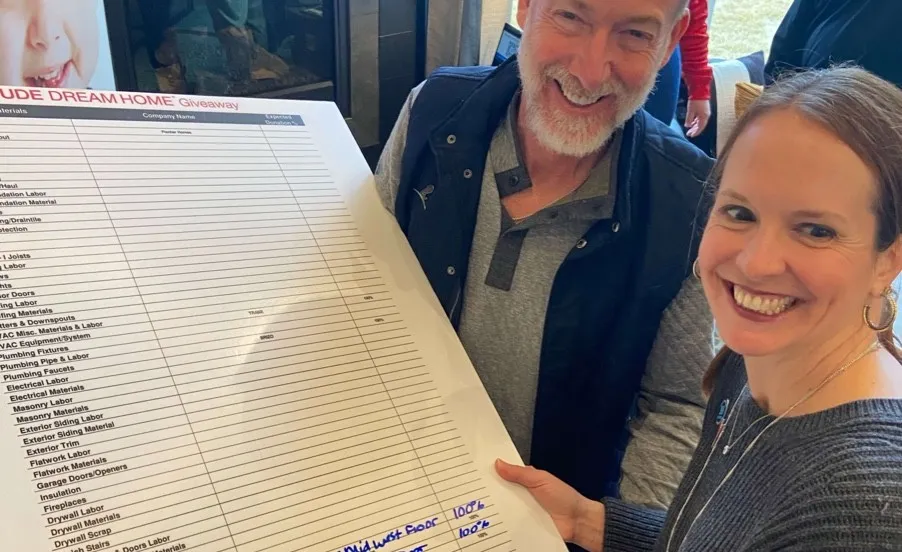 UDE DREAM HOME Giveaway
aterials Company Name Expected Donation %
out
/Haul
ndation Labor
ndation Material
ng/Draintile
otection
- I Joists
g Labor
ws
ghts
or Doors
fing Labor
ofing Materials
tters & Downspouts
VAC Misc. Materials & Labor
VAC Equipment/System TRANE 100%
Plumbing Fixtures
Plumbing Pipe & Labor
Plumbing Faucets BRIZO 100%
Electrical Labor
Electrical Materials
Masonry Labor
Masonry Materials
Exterior Siding Labor
Exterior Siding Material
Exterior Trim
Flatwork Labor
Flatwork Materials
Garage Doors/Openers
Insulation
Fireplaces
Drywall Labor
Drywall Materials
Drywall Scrap
ish Stairs
& Doors Labor
Materials
Midwest Floor 100%
100%
100%
100%